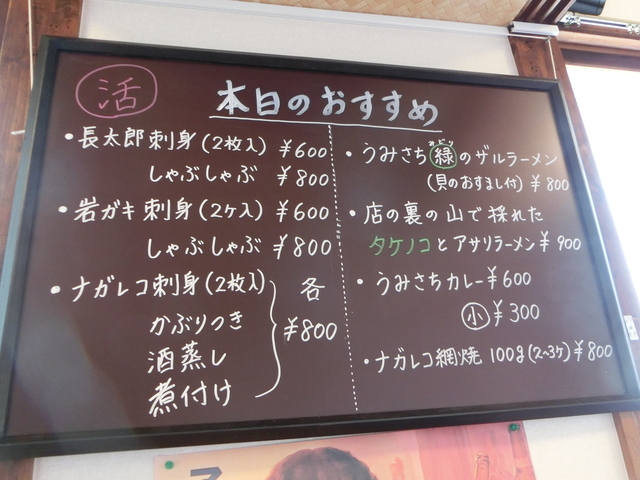 活
本日のおすすめ
・長太郎刺身(2枚入) ¥600
しゃぶしゃぶ ¥800
・岩ガキ刺身(2ケ入) ¥600
しゃぶしゃぶ ¥800
・ナガレコ刺身(2枚入)
かぶりつき
酒蒸し
煮付け
各
¥800
・うみさち緑のザルラーメン
(貝のおすまし付) ¥800
・店の裏の山で採れた
タケノコとアサリラーメン¥900
・うみさちカレー¥600
小 ¥300
・ナガレコ網焼 100g(2〜3ケ) ¥800